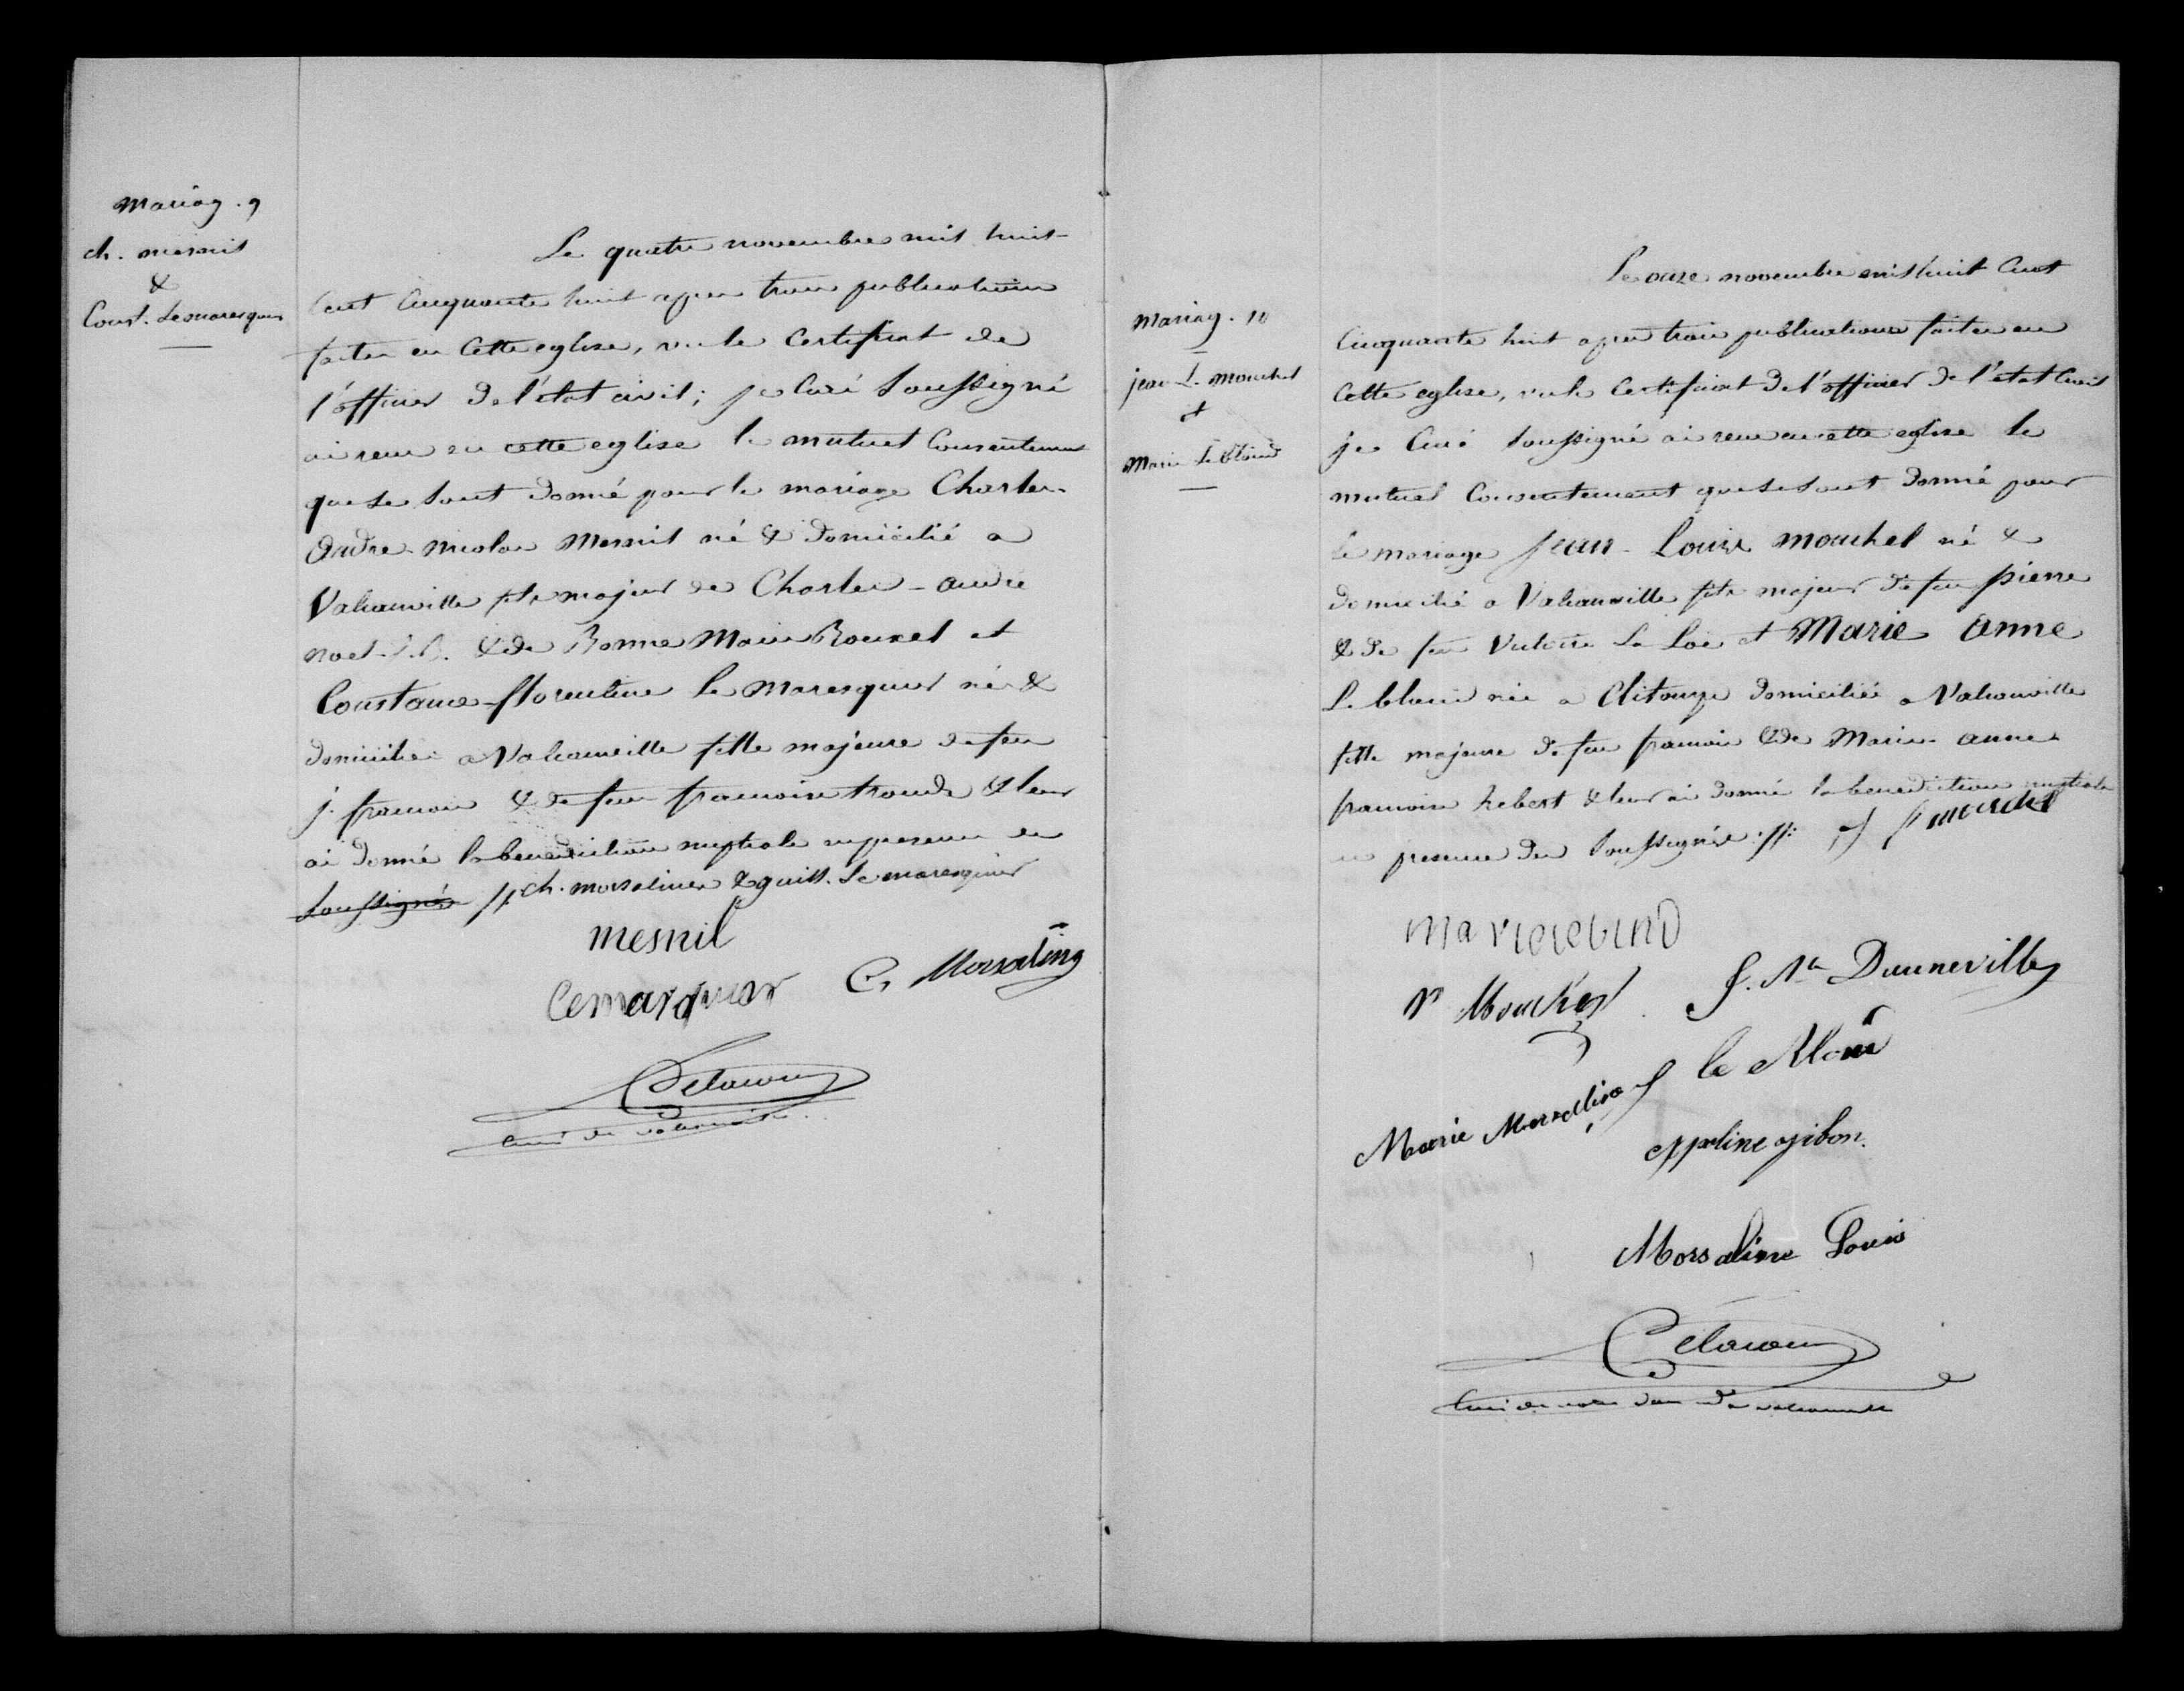 mariag. 9
ch. mesnil
&
Const. Lemaresquier
Le quatre novembre mil huit
cent cinquante huit apres trois publications
faites en cette eglise, vu le certificat de
l'officier de l'état civil; je curé soussigné
ai recu en cette eglise le mutuel consentement
que se sont donné pour le mariage Charles
andre nicolas Mesnil né & domicilié a
Valcanville fils majeur de Charles-andré
noel & de Bonne Marie Rouxel et
Constance-florentine le Maresquier née &
domiciliée a Valcanville fille majeure de feu
j. francois & de feue francoise & leur
ai donné la benediction nuptiale en presence de
soussignés ch. morsaline & guill. Le maresquier
mesnil
Lemarquier C. Morsaline
Delacour
curé de valcanville
mariag. 10
jean L. mouchel
et
Marie Le blond
Le onze novembre mil huit cent
cinquante huit apres trois publications faites en
cette eglise, vu le certificat de l'officier de l'etat civil
je curé soussigné ai recu en cette eglise le
mutuel consentement que se sont donné pour
le mariage jean-Louis mouchel né &
domicilié a Valcanville fils majeur de feu pierre
& de feue Victoire Le Loé et Marie anne
Le blond née a Clitourp domiciliée a Valcanville
fille majeure de feu francois & de Marie anne
francoise hebert & leur ai donné la benediction nuptiale
en presence des soussignés mouchel
Marieleblond
Mouchel Dunneville
Marie Morsaline le Blond
appoline gibon
Morsaline Louis
Delacour
curé de notre dame de valcanville